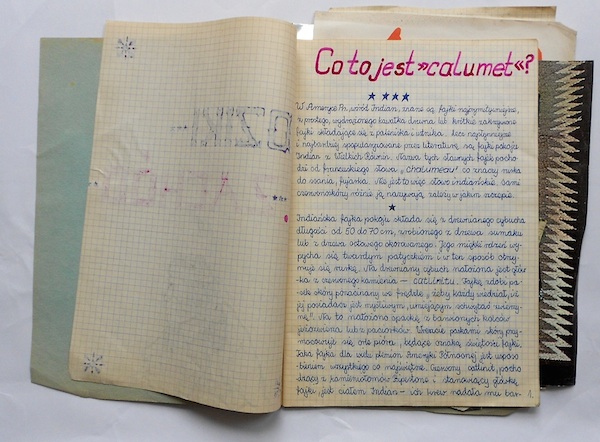 Co to jest »calumet«?
W Ameryce Pn. wśród Indian, znane są fajki najprymitywniejsze,
z prostego, wydrążonego kawałka drewna lub krótkie zakrzywione
fajki składające się z paleniska i ustnika. Lecz najpiękniejsze
i najbardziej spopularyzowane przez literaturę są fajki pokoju
Indian z Wielkich Równin. Nazwa tych sławnych fajek pocho-
dzi od francuskiego słowa „chalumeau" co znaczy rurka
do ssania, fujarka. Nie jest to więc słowo indiańskie. Sami
czerwonoskórzy różnie ją nazywają, zależy w jakim szczepie.
Indiańska fajka pokoju składa się z drewnianego cybucha
długości od 50 do 70 cm, zrobionego z drzewa sumaku
lub z drzewa octowego okorowanego. Jego miękki rdzeń wy-
pycha się twardym patyczkiem i w ten sposób otrzy-
muje się rurkę. Na drewniany cybuch nałożona jest głów-
ka z czerwonego kamienia – catlinitu. Fajkę zdobi pa-
sek skóry pozacinany we frędzle, żeby każdy wiedział, iż
jej posiadacz jest myśliwym, umiejącym schwytać zwierzy-
nę". Na to nałożono opaskę z barwionych kolców
jeżozwierza lub z paciorków. Wreszcie paskami skóry przy-
mocowuje się orle pióra, będące oznaką świętości fajki.
Taka fajka dla wielu plemion Ameryki Północnej jest uosoo-
bieniem wszystkiego co najświętsze. Czerwony catlinit, pocho-
dzący z kamieniołomów Pipestone i stanowiący główkę
fajki, jest ciałem Indian – ich krew nadała mu bar- 1.